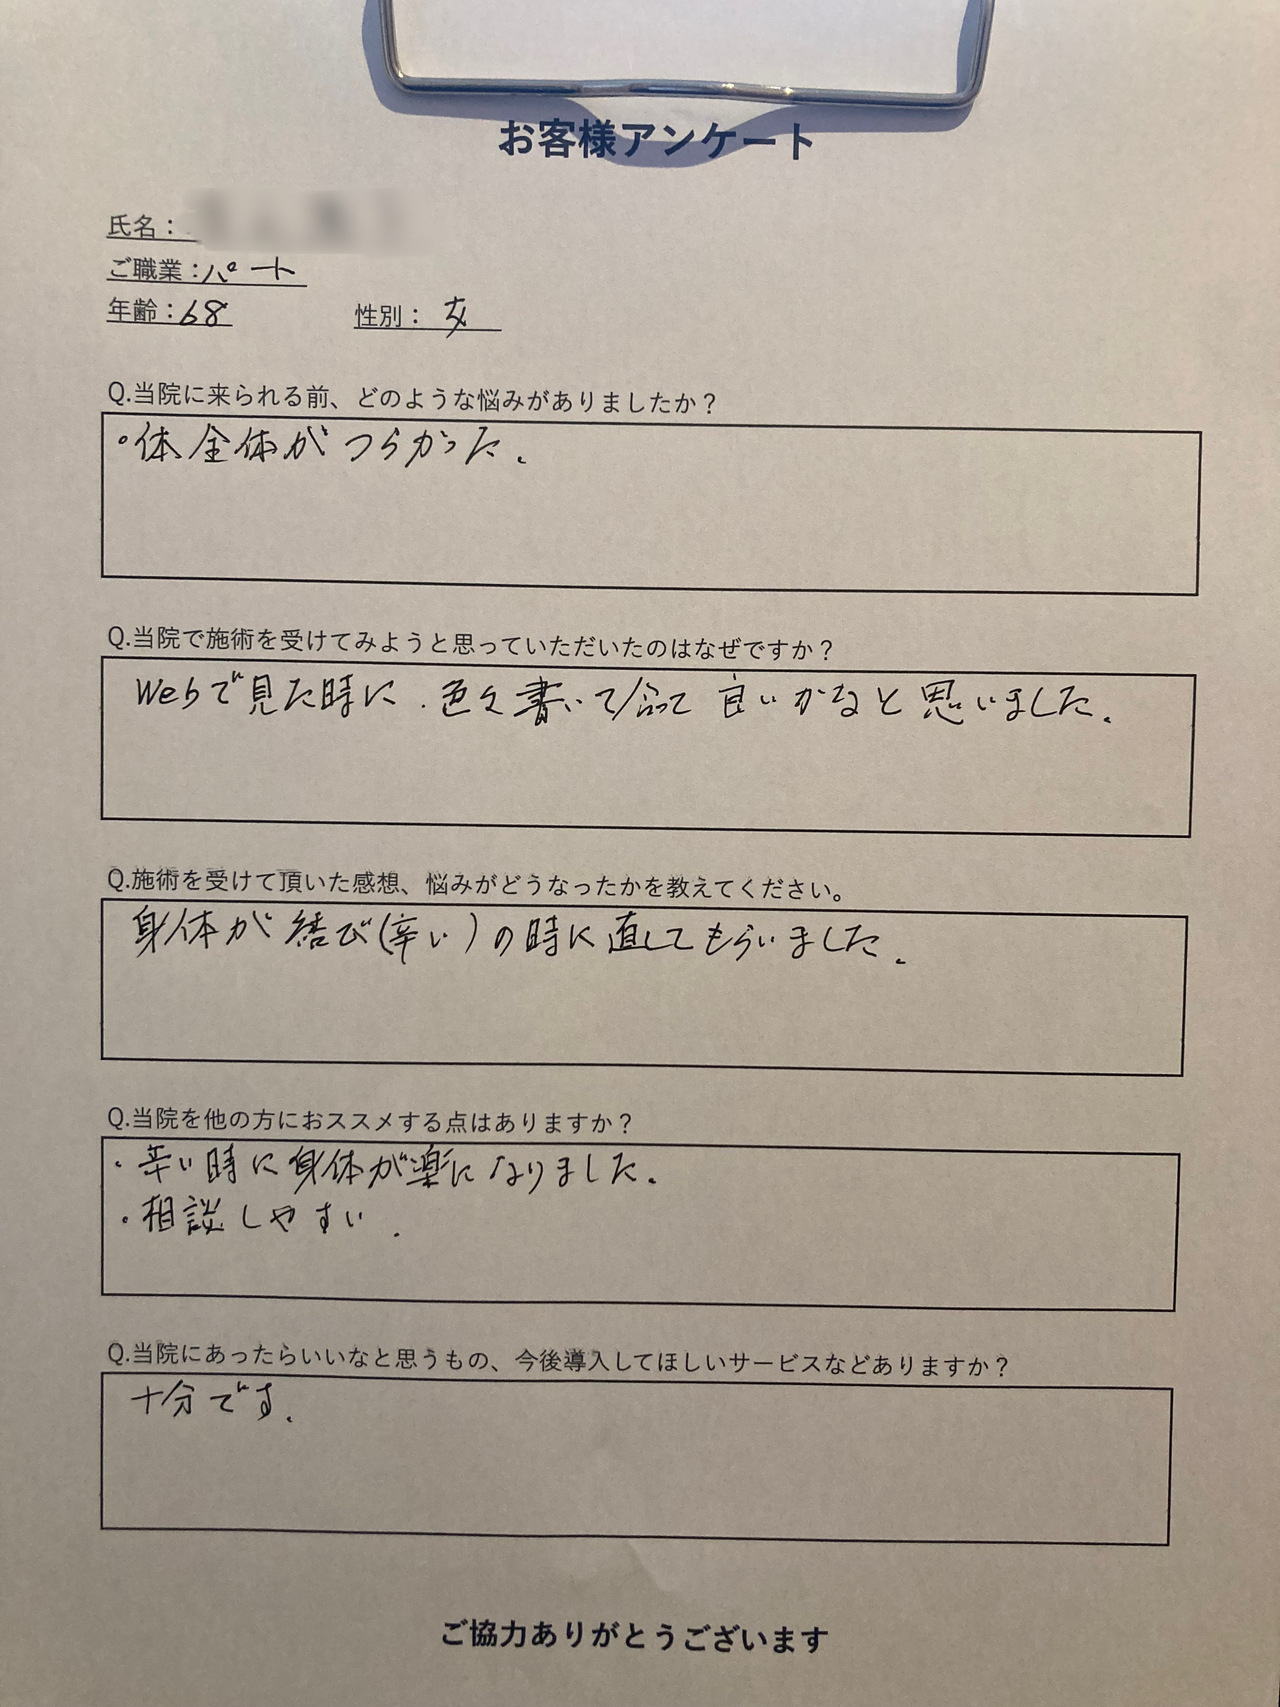 お客様アンケート
氏名：
ご職業：パート
年齢：68 性別：女
Q.当院に来られる前、どのような悩みがありましたか？
・体全体がつらかった。
Q.当院で施術を受けてみようと思っていただいたのはなぜですか？
Webで見た時に、色々書いて 良いかなと思いました。
Q.施術を受けて頂いた感想、悩みがどうなったかを教えてください。
身体が結び(辛い)の時に直してもらいました。
Q.当院を他の方におススメする点はありますか？
・辛い時に身体が楽になりました。
・相談しやすい.
Q.当院にあったらいいなと思うもの、今後導入してほしいサービスなどありますか？
十分です.
ご協力ありがとうございます